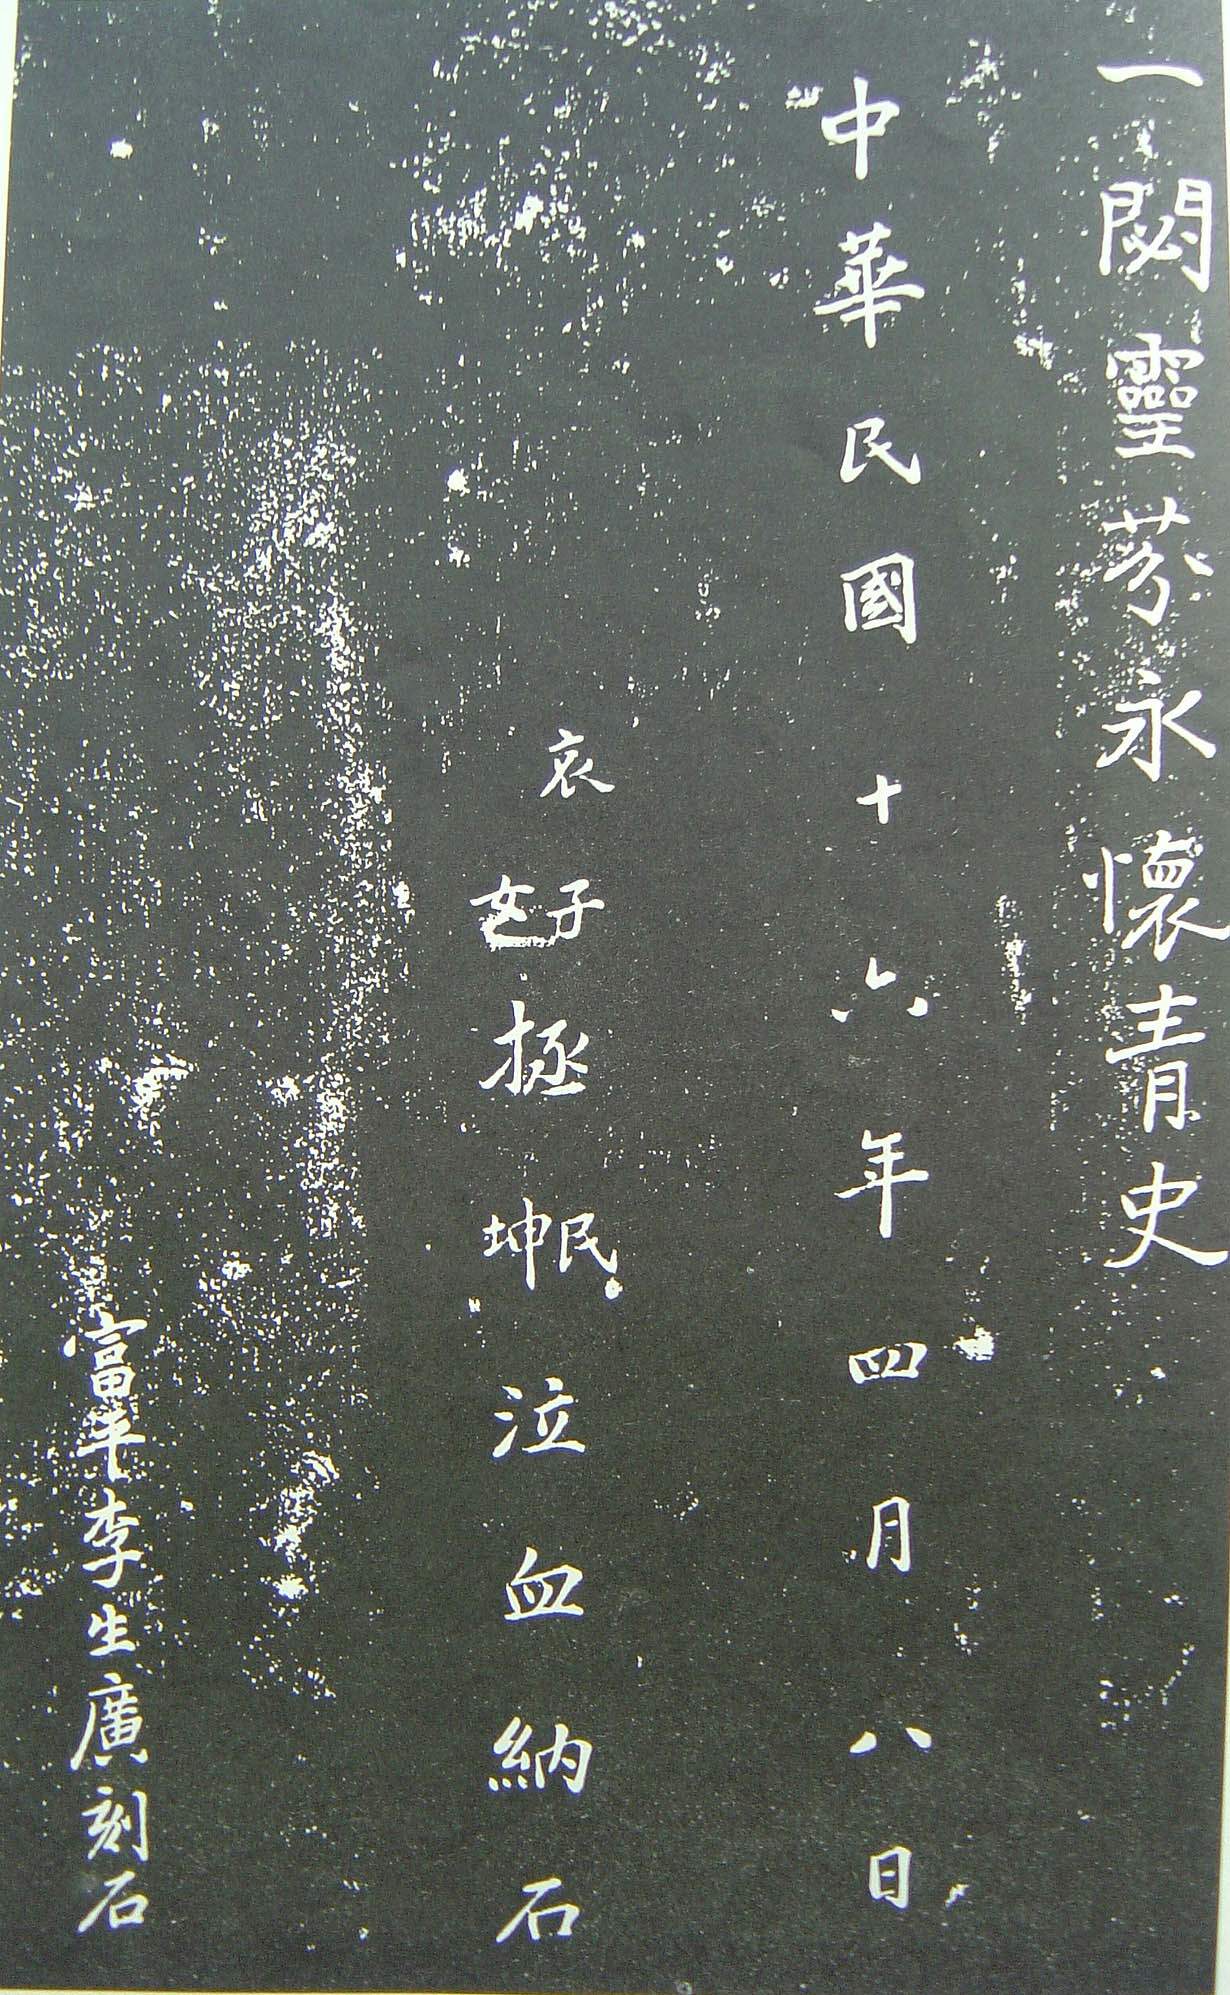 一閟靈芬永懷青史
中華民國十六年四月八日
哀子女拯民坤泣血納石
富平李生廣刻石